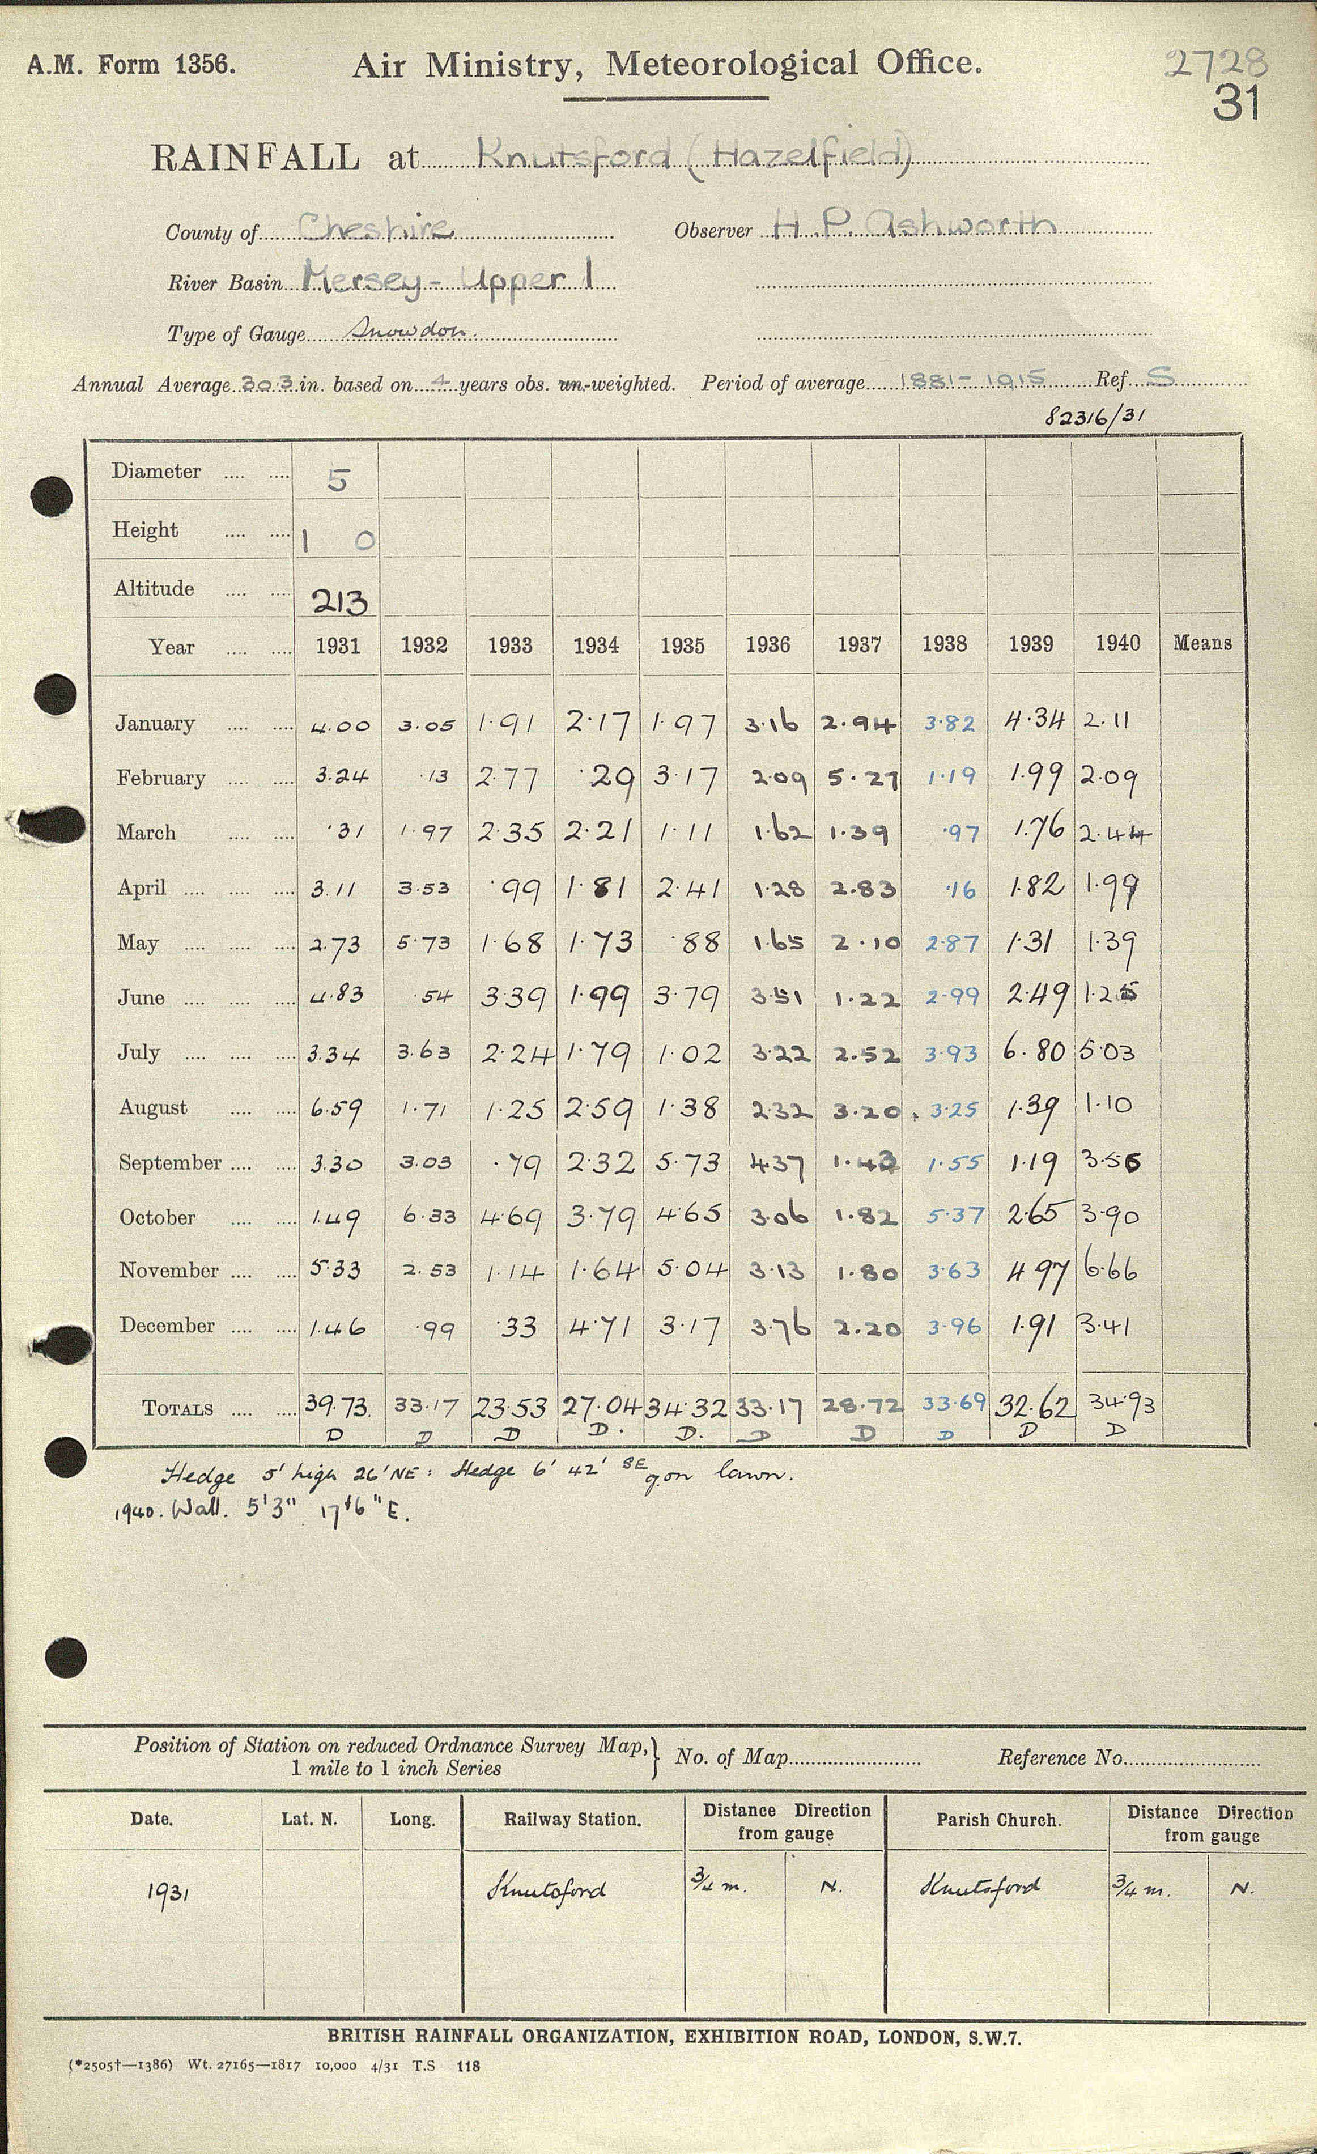 A.M. Form 1356. Air Ministry, Meteorological Office. 2728
31
RAINFALL at Knutsford (Hazelfield)
County of Cheshire Observer H. P. Ashworth
River Basin Mersey - Upper 1
Type of Gauge Snowdon.
Annual Average 30.3 in. based on 4 years obs. un-weighted. Period of average 1881-1915 Ref S
82316/31
Diameter 5
Height 1 0
Altitude 213
Year 1931 1932 1933 1934 1935 1936 1937 1938 1939 1940 Means
January 4.00 3.05 1.91 2.17 1.97 3.16 2.94 3.82 4.34 2.11
February 3.24 .13 2.77 .29 3.17 2.09 5.27 1.19 1.99 2.09
March .31 1.97 2.35 2.21 1.11 1.62 1.39 .97 1.76 2.44
April 3.11 3.53 .99 1.81 2.41 1.28 2.83 .16 1.82 1.99
May 2.73 5.73 1.68 1.73 .88 1.65 2.10 2.87 1.31 1.39
June 4.83 .54 3.39 1.99 3.79 3.51 1.22 2.99 2.49 1.25
July 3.34 3.63 2.24 1.79 1.02 3.22 2.52 3.93 6.80 5.03
August 6.59 1.71 1.25 2.59 1.38 2.32 3.20 3.25 1.39 1.10
September 3.30 3.03 .79 2.32 5.73 4.37 1.43 1.55 1.19 3.56
October 1.49 6.33 4.69 3.79 4.65 3.06 1.82 5.37 2.65 3.90
November 5.33 2.53 1.14 1.64 5.04 3.13 1.80 3.63 4.97 6.66
December 1.46 .99 .33 4.71 3.17 3.76 2.20 3.96 1.91 3.41
TOTALS 39.73 33.17 23.53 27.04 34.32 33.17 28.72 33.69 32.62 34.93
D D D D. D. D D D D D
Hedge 5' high 26' NE: Hedge 6' 42' SE g. on lawn.
1940. Wall. 5'3" 17'6" E.
Position of Station on reduced Ordnance Survey Map, } No. of Map Reference No.
1 mile to 1 inch Series
Date. Lat. N. Long. Railway Station. Distance Direction from gauge Parish Church. Distance Direction from gauge
1931 Knutsford 3/4 m. N. Knutsford 3/4 m. N.
BRITISH RAINFALL ORGANIZATION, EXHIBITION ROAD, LONDON, S.W.7.
(*2505†—1386) Wt. 27165—1817 10,000 4/31 T.S 118